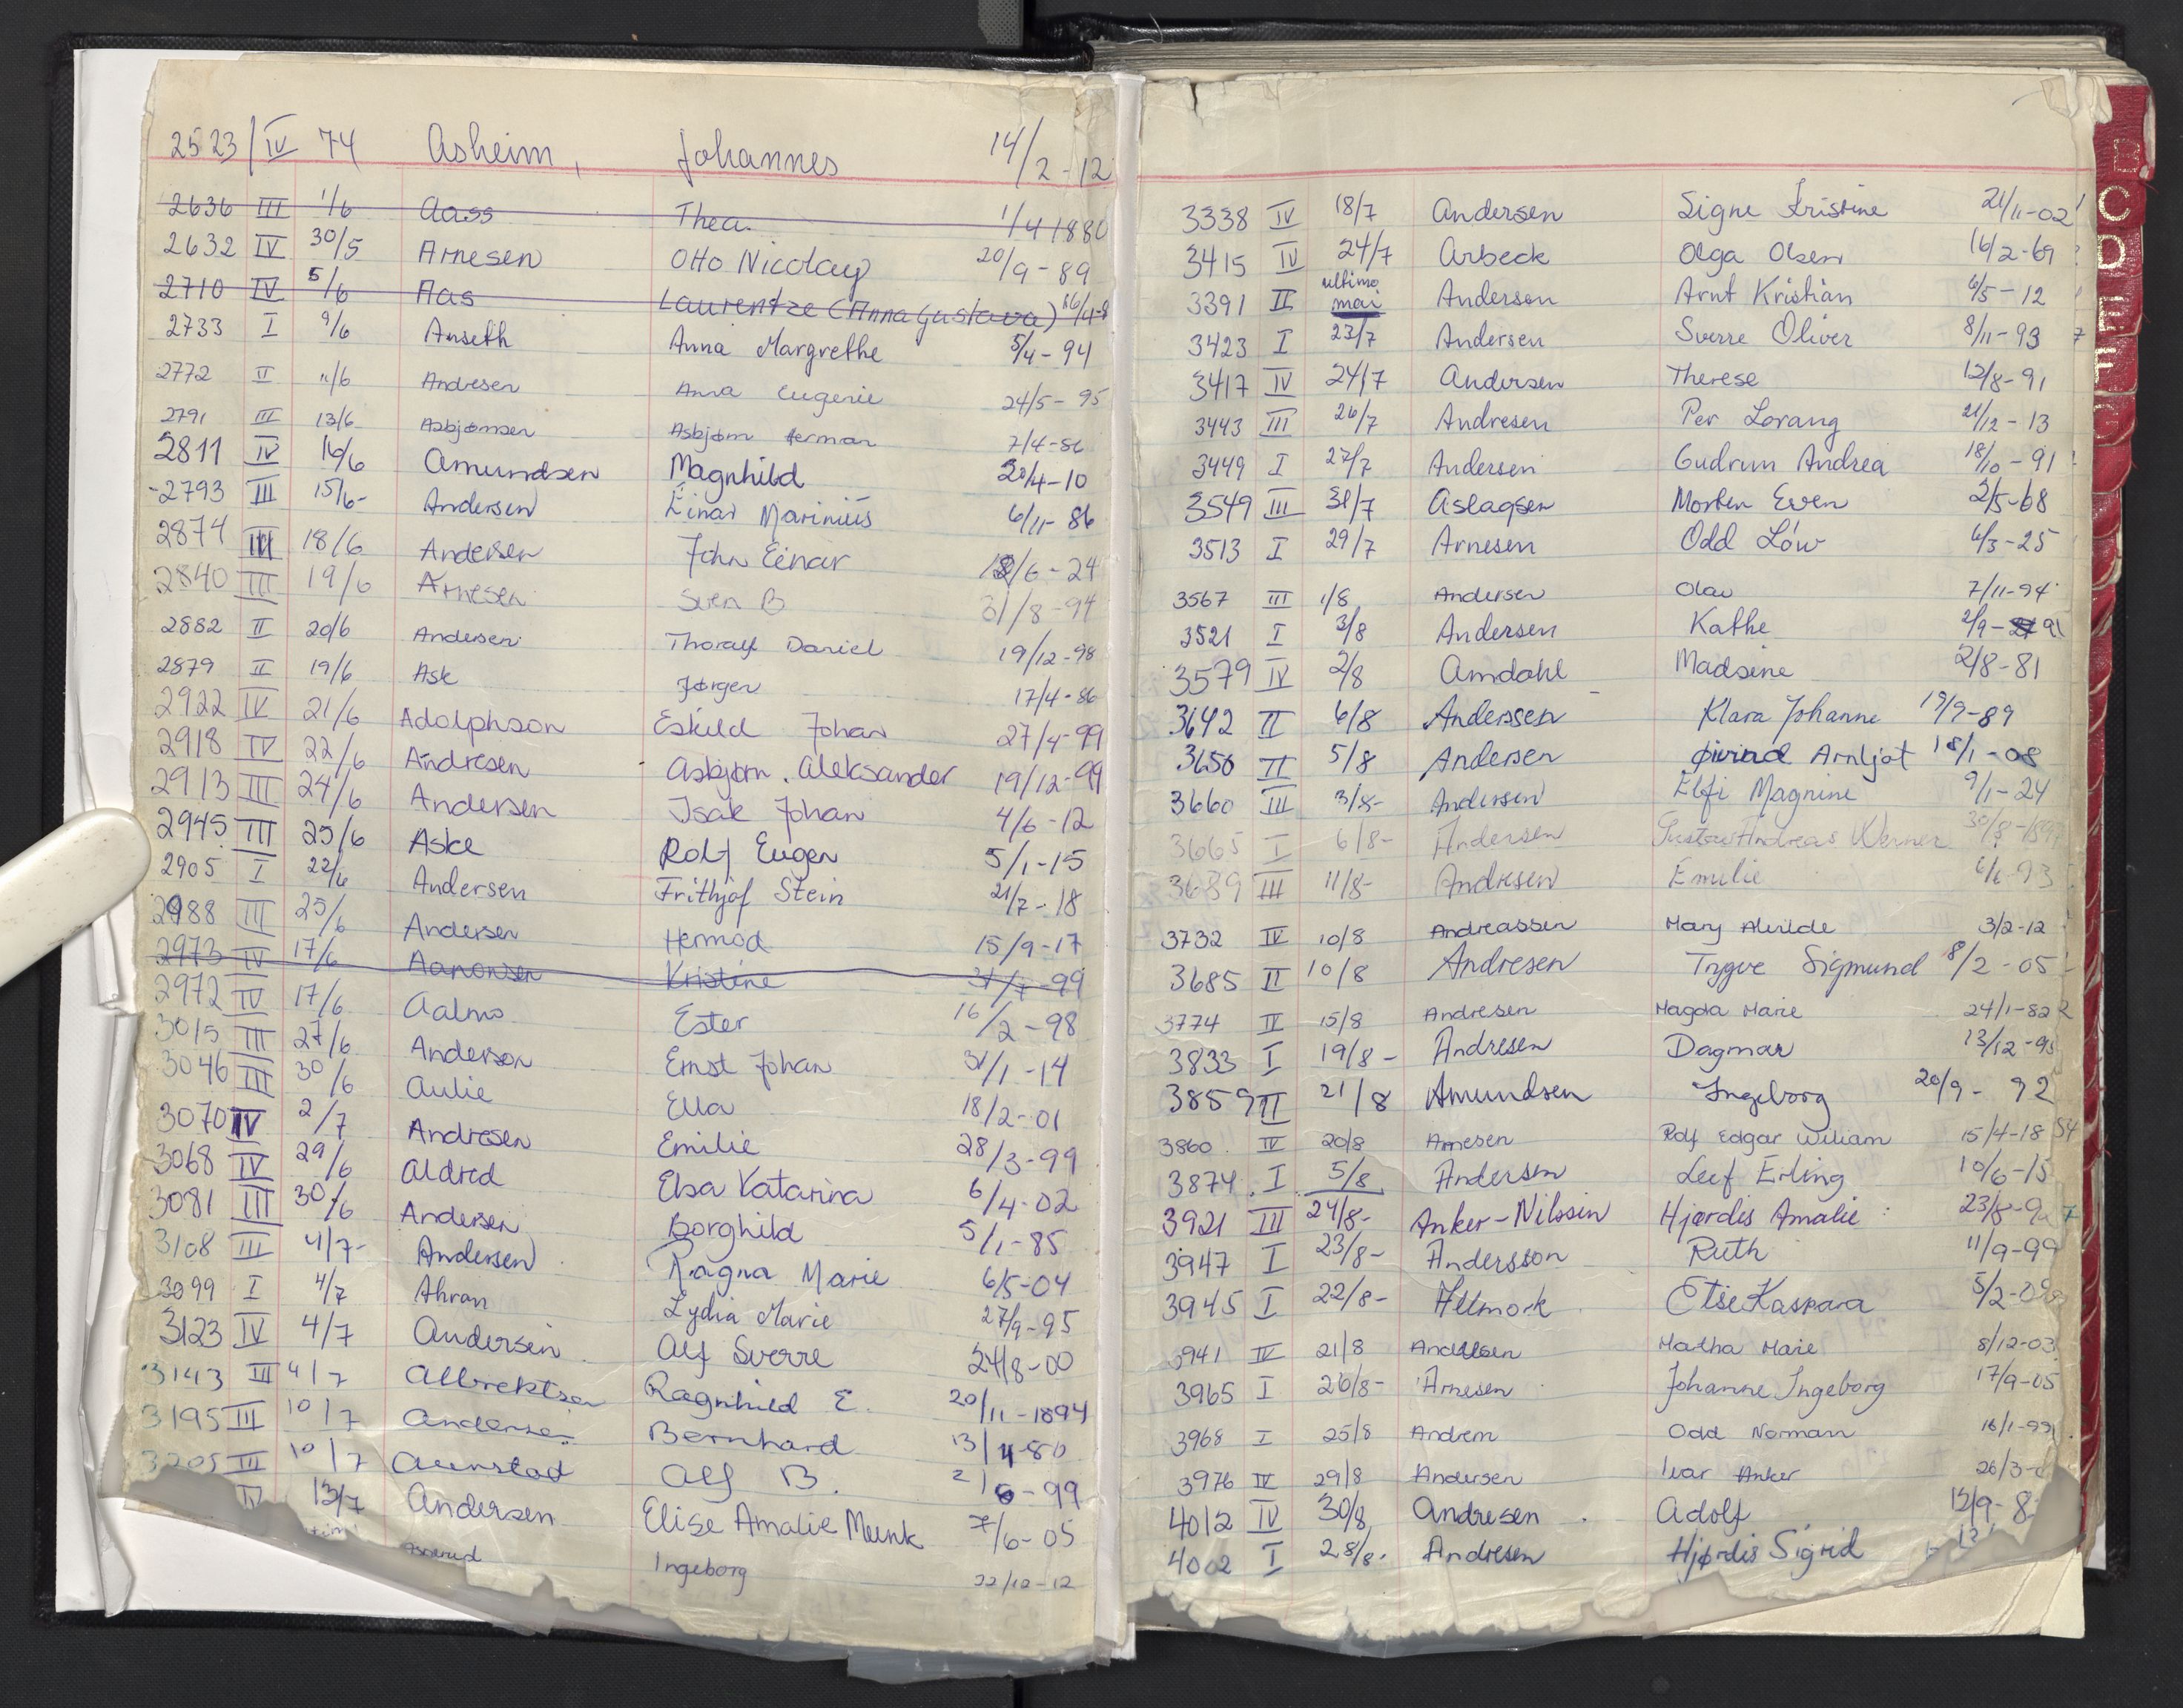 2523/IV 74 Asheim, Johannes 14/2-12
2636 III 1/6 Aass Thea. 1/4 1880
2632 IV 30/5 Arnesen Otto Nicolay 20/9-89
2710 IV 5/6 Aas Laurentze (Anna Gustava) 16/4-8
2733 I 9/6 Anseth Anna Margrethe 5/4-94
2772 II 11/6 Andresen Anna Eugenie 24/5-95
2791 III 13/6 Asbjørnsen Asbjørn Herman 7/4-86
2811 IV 16/6 Amundsen Magnhild 20/4-10
-2793 III 15/6- Andersen Einar Marinius 6/11-86
2874 III 18/6 Andersen John Einar /6-24
2840 III 19/6 Arnesen Sven B 31/8-94
2882 II 20/6 Andersen Thoralf Daniel 19/12-98
2879 II 19/6 Ask Jørgen 17/4-86
2922 IV 21/6 Adolphson Eskild Johan 27/4-99
2918 IV 22/6 Andresen Asbjørn. Aleksander 19/12-99
2913 III 24/6 Andersen Isak Johan 4/6-12
2945 III 25/6 Aske Rolf Eugen 5/1-15
2905 I 22/6 Andersen Frithjof Stein 21/7-18
2988 III 25/6 Andersen Hermod 15/9-17
2973 IV 17/6 Aanonsen Kristine 31/7-99
2972 IV 17/6 Aalmo Ester 16/2-98
3015 III 27/6 Anderson Ernst Johan 31/1-14
3046 III 30/6 Aulie Ella 18/2-01
3070 IV 2/7 Andresen Emilie 28/3-99
3068 IV 29/6 Aldred Elsa Katarina 6/4-02
3081 III 30/6 Andersen Borghild 5/1-85
3108 III 4/7- Andersen Ragna Marie 6/5-04
3099 I 4/7 Ahran Lydia Marie 27/9-95
3123 IV 4/7 Andersen Alf Sverre 24/8-00
3143 III 4/7 Albrektsen Ragnhild E. 20/11-1894
3195 III 10/7 Andersen Bernhard 13/4-80
3205 III 10/7 Aunstad Alf B. 2/6-99
IV 13/7 Andersen Elise Amalie Munk 7/6-05
Asperud Ingeborg 22/12-12
3338 IV 18/7 Andersen Signe Kristine 21/11-02
3415 IV 24/7 Arbeck Olga Olsen 16/2-69
3391 II ultimo mai Anderson Arnt Kristian 6/5-12
3423 I 23/7 Andersen Sverre Oliver 8/11-93
3417 IV 24/7 Andersen Therese 12/8-91
3443 III 26/7 Andresen Per Lorang 21/12-13
3449 I 27/7 Andersen Gudrun Andrea 18/10-91
3549 III 31/7 Aslagsen Morten Even 2/5-68
3513 I 29/7 Arnesen Odd Löw 6/3-25
3567 III 1/8 Andersen Olav 7/11-94
3521 I 3/8 Andersen Kathe 2/9-91
3579 IV 2/8 Amdahl Madsine 2/8-81
3642 II 6/8 Anderssen Klara Johanne 19/9-89
3650 II 5/8 Andersen Øivind Arnljot 18/1-08
3660 III 3/8- Andersen Elfi Magnine 9/1-24
3665 I 6/8- Andersen Gustav Andreas Werner 30/8-1897
3689 III 11/8- Andresen Emilie 6/6-93
3732 IV 10/8 Andreassen Mary Alvilde 3/2-12
3685 II 10/8 Andresen Trygve Sigmund 8/2-05
3774 IV 15/8 Andresen Magda Marie 24/1-82
3833 I 19/8- Andresen Dagmar 13/12-95
3859 II 21/8 Amundsen Ingeborg 20/9-92
3860 IV 20/8 Arnesen Rolf Edgar William 15/4-18
3874 I 5/8 Andersen Leif Erling 10/6-15
3921 III 24/8- Anker-Nilssen Hjørdis Amalie 23/8-9
3947 I 23/8- Andersson Ruth 11/9-99
3945 I 22/8- Allmork Elise Kaspara 5/2-0
3941 IV 21/8 Andersen Martha Marie 8/12-03
3965 I 26/8- Arnesen Johanne Ingeborg 17/9-05
3968 I 25/8 Andrem Odd Normann 16/1-99
3976 IV 29/8 Andersen Ivar Anker 26/3-
4012 IV 30/8 Andresen Adolf 12/9-8
4002 I 28/8. Andresen Hjørdis Sigrid
B
C
D
E
F
G